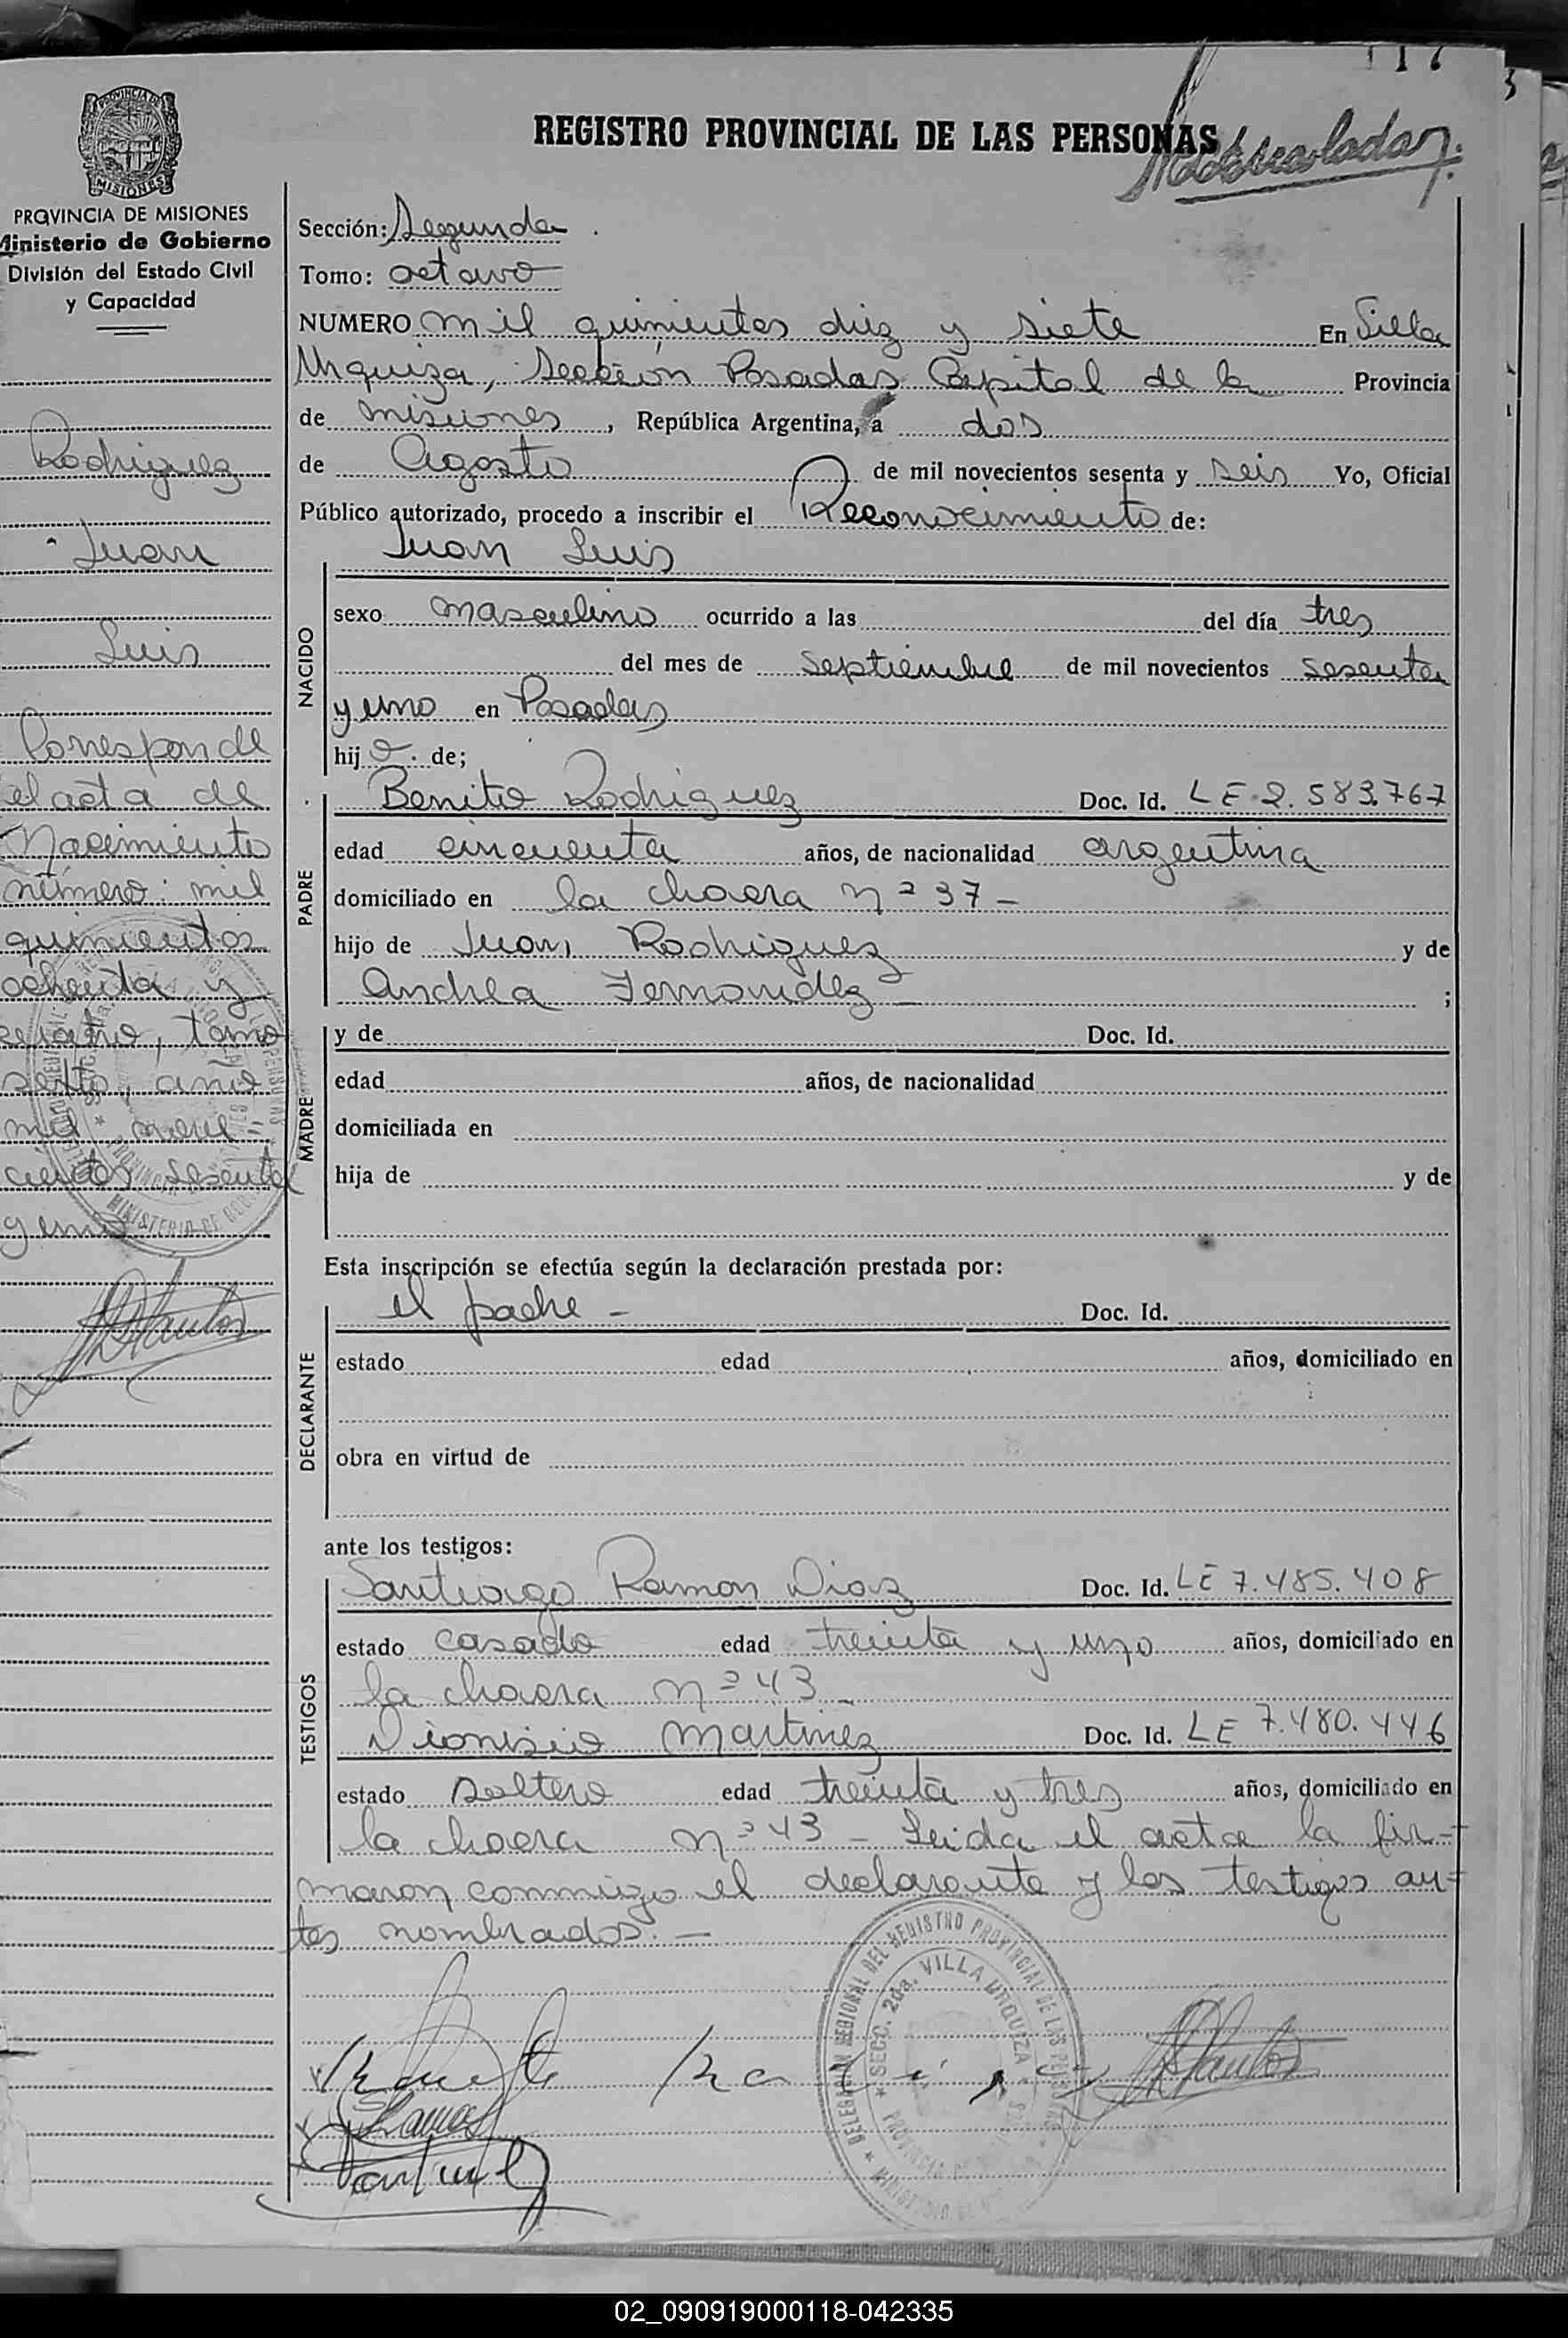 117
REGISTRO PROVINCIAL DE LAS PERSONAS
PROVINCIA DE MISIONES
Ministerio de Gobierno
División del Estado Civil
y Capacidad
Rodriguez
Juan
Luis
Corresponde
el acta de
Nacimiento
número: mil
quinientos
ochenta y
cuatro, tomo
sexto, año
mil nove =
cientos sesenta
y uno
Sección: Segunda
Tomo: octavo
NUMERO mil quinientos diez y siete En Villa
Urquiza, Sección Posadas Capital de la Provincia
de misiones, República Argentina, a dos
de Agosto de mil novecientos sesenta y seis Yo, Oficial
Público autorizado, procedo a inscribir el Reconocimiento de:
Juan Luis
NACIDO
sexo masculino ocurrido a las del día tres
del mes de septiembre de mil novecientos sesenta
y uno en Posadas
hij o. de;
PADRE
Benito Rodriguez Doc. Id. LE 2.583.767
edad cincuenta años, de nacionalidad argentina
domiciliado en la chacra nº 37 -
hijo de Juan Rodriguez y de
Andrea Fernandez - ;
MADRE
y de Doc. Id.
edad años, de nacionalidad
domiciliada en
hija de y de
Esta inscripción se efectúa según la declaración prestada por:
DECLARANTE
el padre - Doc. Id.
estado edad años, domiciliado en
obra en virtud de
ante los testigos:
TESTIGOS
Santiago Ramon Diaz Doc. Id. LE 7.485.408
estado casado edad treinta y uno años, domiciliado en
la chacra nº 43 -
Dionisio Martinez Doc. Id. LE 7.480.446
estado soltero edad treinta y tres años, domiciliado en
la chacra nº 43 - Leida el acta la fir-
maron conmigo el declarante y los testigos an-
tes nombrados. -
DELEGACION REGIONAL DEL REGISTRO PROVINCIAL DE LAS PERSONAS
SECC. 2da. VILLA URQUIZA
02_090919000118-042335